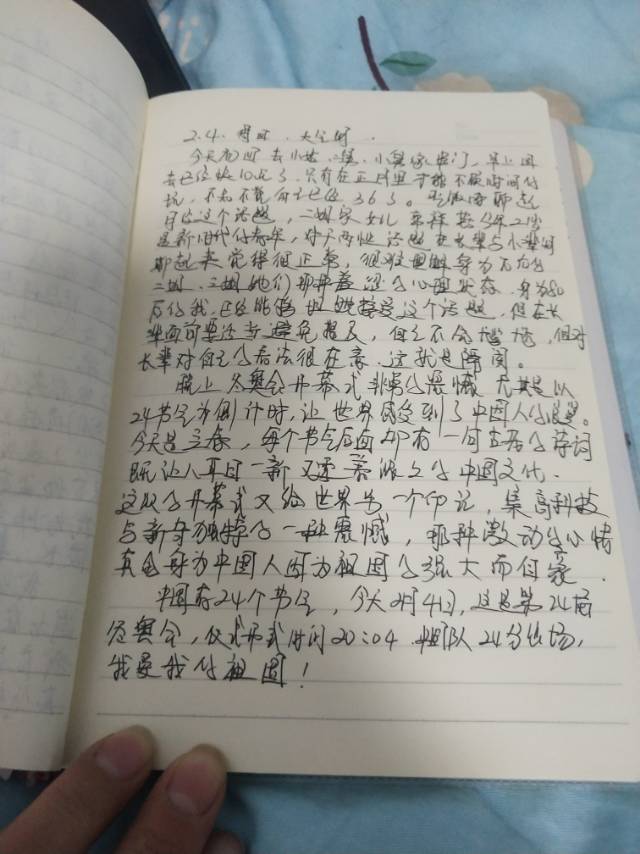 2.4. 周五 . 大年初四 .
今天初四去小姑 小舅家串门, 早上
去已经快10点了, 只有在正月里才能不被时间付
不知不觉自己已经36了。聊起
这个话题, 二姐家女儿 今年21岁
是新时代的青年, 对于两性话题在长辈与小辈间
聊起来觉得很正常, 很难理解身为
二姐、三姐她们 心理状态. 身为80
后的我, 已经能够坦然接受这个话题, 但在长
辈面前要么是避免提及, 自己不会尴尬, 但对
长辈对自己的看法很在意. 这就是隔阂。
晚上冬奥会开幕式非常的震憾 尤其是以
24节气为倒计时, 让世界感受到了中国人的浪漫。
今天是立春, 每个节气后面都有一句古香的诗词
既让人耳目一新 又透着浓浓的中国文化.
这次的开幕式又给世界留一个印记, 集高科技
与新年独特的一种震憾, 那种激动的心情
真的身为中国人因为祖国的强大而自豪 .
中国有24个节气, 今天2月4日, 这是第24届
冬奥会, 仪式开式时间20:04 中国队24分出场,
我爱我的祖国!